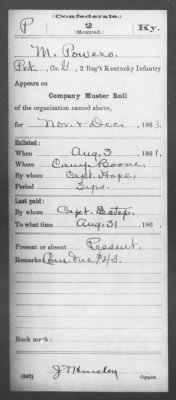 (Confederate.)
P 2 Ky.
(Mounted.)
M. Powers.
Pvt., Co. G, 2 Reg't Kentucky Infantry
Appears on
Company Muster Roll
of the organization named above,
for Nov. & Dec., 1863.
Enlisted:
When Aug. 3, 1861.
Where Camp Boone.
By whom Capt. Hope,
Period 3 yrs.
Last paid:
By whom Capt. Estep.
To what time Aug. 31, 186 .
Present or absent Present.
Remarks: Com due $43.
Book mark:
(642) Copyist.